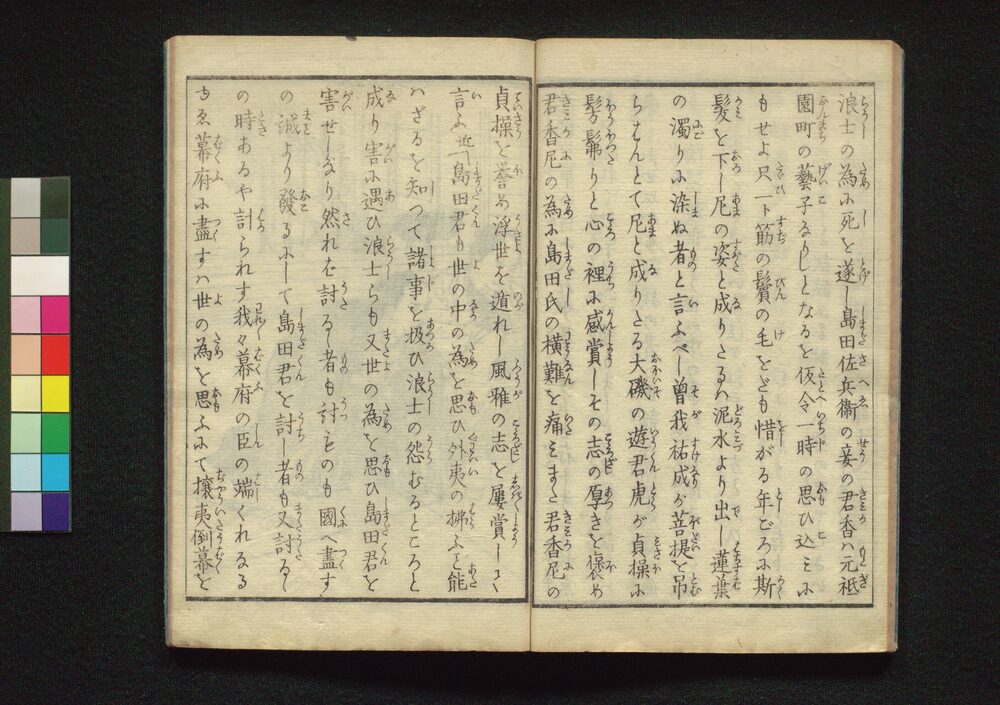 浪士の為に死を遂し島田佐兵衞の妾の君香ハ元祗
園町の藝子なりしとなるを仮令一時の思ひ込ミに
もせよ只一ト筋の鬢の毛をども惜がる年ごろに斯
髪を下し尼の姿と成りたるハ泥水より出し蓮葉
の濁りに染ぬ者と言ふべし曾我祐成が菩提を吊
らはんとて尼と成りたる大磯の遊君虎が貞操に
髣髴りと心の裡に感賞しその志の厚きを褒め
君香尼の為に島田氏の横難を痛ミまた君香尼の
貞操を誉め浮世を遁れし風雅の志を屢賞しさて
言よ島田君も世の中の為を思ひ外夷の拂ふに能
ハざるを知つて諸事を扱ひ浪士の怨むるところと
成り害に遇ひ浪士らも又世の為を思ひ島田君を
害せしなり然れば討るゝ者も討ものも國へ盡す
の誠より發るにして島田君を討し者も又討るゝ
の時あるや計られず我々幕府の臣の端くれなる
もゑ幕府に盡すハ世の為を思ふにて攘夷倒幕を